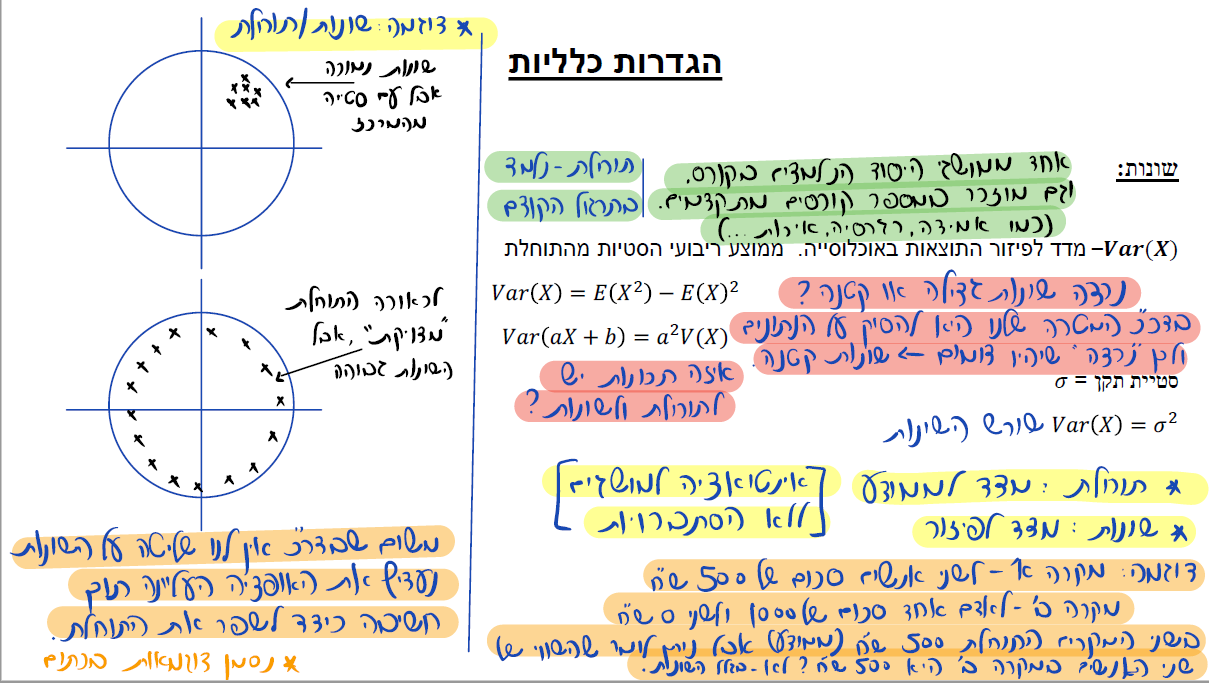 הגדרות כלליות
שונות:
אחד ממושגי היסוד הנלמדים בקורס.
וגם מוזכר במספר קורסים מתקדמים.
(כמו אמידה, רגרסיה, איכות ...)
תוחלת - נלמד
בתרגול הקודם
Var(X) – מדד לפיזור התוצאות באוכלוסייה. ממוצע ריבועי הסטיות מהתוחלת
Var(X) = E(X²) − E(X)²
Var(aX + b) = a²V(X)
נרצה שונות גדולה או קטנה?
בדר"כ המטרה שלנו היא להסיק על הנתונים
ולכן "נרצה" שיהיו דומים ← שונות קטנה.
איזה תכונות יש
לתוחלת ולשונות?
סטיית תקן = σ
Var(X) = σ² שורש השונות
* תוחלת: מדד לממוצע
* שונות: מדד לפיזור
[אינטואיציה למושגים
ללא הסתברויות]
דוגמה: מקרה א' - לשני אנשים סכום של 500 ש"ח
מקרה ב' - לאדם אחד סכום של 1000 ולשני 0 ש"ח
בשני המקרים התוחלת 500 ש"ח (ממוצע) אבל ניתן לומר שהשווי של
שני האנשים במקרה ב' היא 500 ש"ח? לא - בגלל השונות.
* דוגמה: שונות/תוחלת
שונות נמוכה
אבל עם סטיה
מהמרכז
לכאורה התוחלת
"מדויקת", אבל
השונות גבוהה
משום שבדר"כ אין לנו שליטה על השונות
נעדיף את האופציה העליונה תוך
חשיבה כיצד לשפר את התוחלת.
* נסמן דוגמאות בכתום